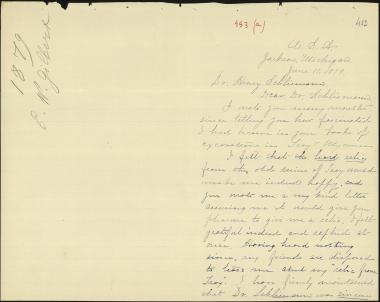 1879
E. W. Gilbert
553 (a)
412
U. S. A.
Jackson, Michigan
June 11. 1879.
Dr. Henry Schliemann
Dear Dr. Schliemann
I wrote you many months
since telling you how fascinated
I had become in your books of
excavations in Troy & Mycenae
I felt that the least relic
from the old ruins of Troy would
make me indeed happy, and
you wrote me a very kind letter
assuring me it would give you
pleasure to give me a relic. I felt
grateful indeed and replied at
once. Having heard nothing
since, my friends are disposed
to tease me about my "relic from
Troy". I have firmly maintained
that Dr. Schliemann was sincere